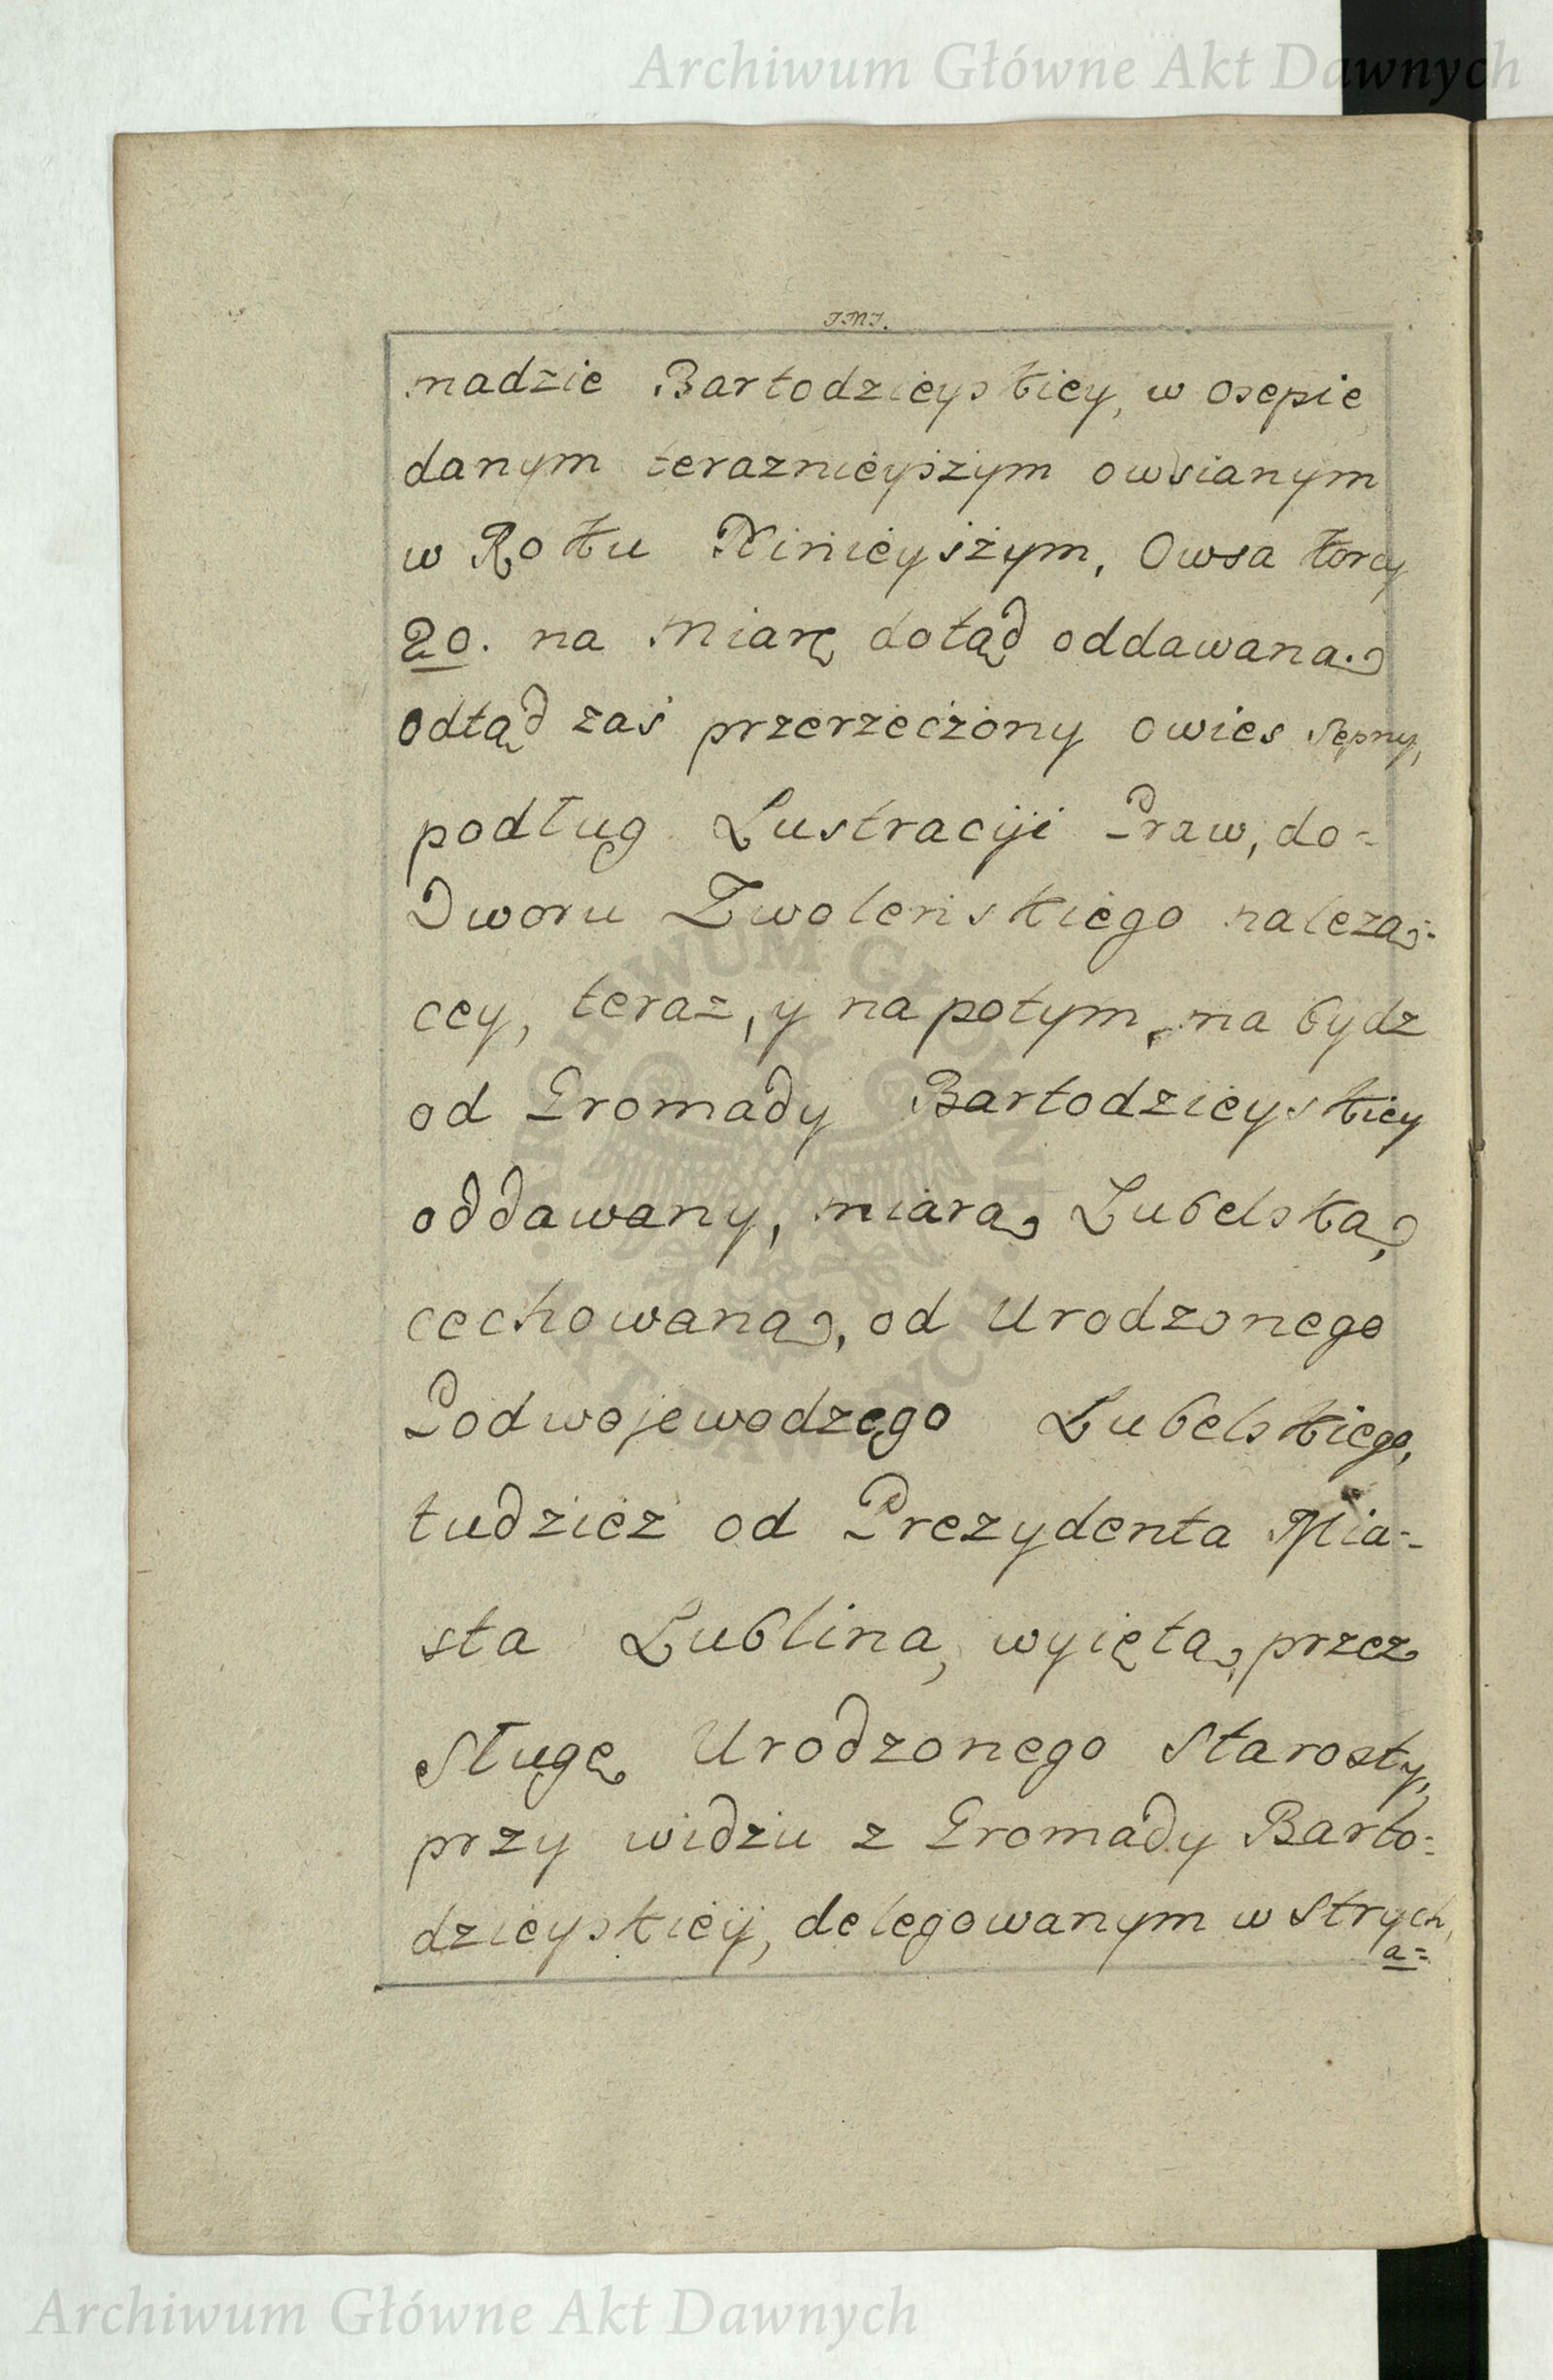 Archiwum Główne Akt Dawnych
J.M.J.
madzie Bartodzieyskiey, w osepie
danym teraznieyszym owsianym
w Roku Ninieyszym, Owsa korcy
20. na Miarę dotąd oddawaną
odtąd zaś przerzeczony owies sepny,
podług Lustracyji Praw, do-
Dworu Zwolenskiego nalezą-
cey, teraz, y na potym, ma bydz
od Gromady Bartodzieyskiey
oddawany, miarą Lubelską,
cechowaną, od Urodzonego
Podwojewodzego Lubelskiego,
tudziez od Prezydenta Mia-
sta Lublina, wyiętą, przez
Sługę Urodzonego Starosty,
przy widzu z Gromady Barto-
dzieyskiey, delegowanym w strych,
a-
ARCHIWUM GŁÓWNE AKT DAWNYCH
Archiwum Główne Akt Dawnych